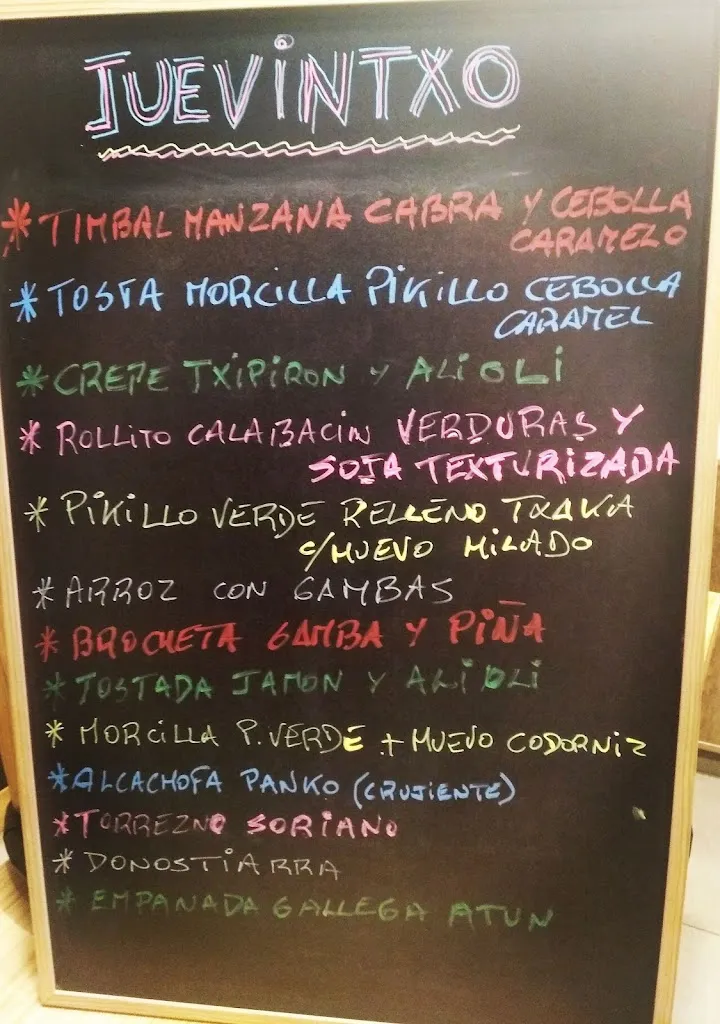 JUEVINTXO
* TIMBAL MANZANA CABRA Y CEBOLLA
CARAMELO
* TOSTA MORCILLA PIKILLO CEBOLLA
CARAMEL
* CREPE TXIPIRON Y ALIOLI
* ROLLITO CALABACIN VERDURAS Y
SOJA TEXTURIZADA
* PIKILLO VERDE RELLENO TXAKA
C/HUEVO HILADO
* ARROZ CON GAMBAS
* BROCHETA GAMBA Y PIÑA
* TOSTADA JAMON Y ALIOLI
* MORCILLA P.VERDE + HUEVO CODORNIZ
* ALCACHOFA PANKO (CRUJIENTE)
* TORREZNO SORIANO
* DONOSTIARRA
* EMPANADA GALLEGA ATUN